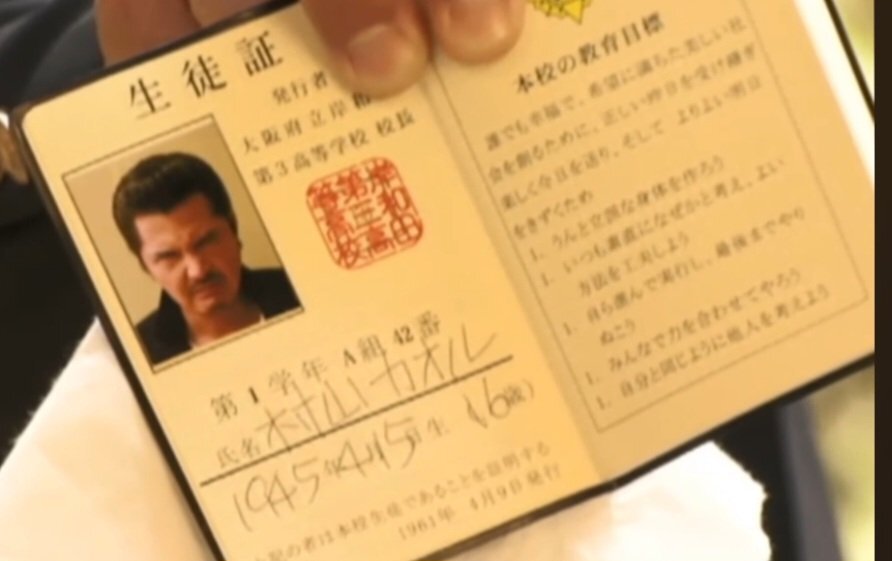 生徒証
発行者
大阪府立岸和
第3高等学校 校長
岸和田
第三高
等学校
第1学年 A組 42番
氏名 カオル
1945年4月15日生 (16歳)
上記の者は本校生徒であることを証明する
1961年 4月9日発行
本校の教育目標
誰でも幸福で、希望に満ちた美しい社
会を創るために、正しい昨日を受け継ぎ
楽しく今日を送り、そして よりよい明日
をきずくため
1. うんと立派な身体を作ろう
1. いつも素直になぜかと考え、よい
方法を工夫しよう
1. 自ら進んで実行し、最後までやり
ぬこう
1. みんなで力を合わせてやろう
1. 自分と同じように他人を考えよう